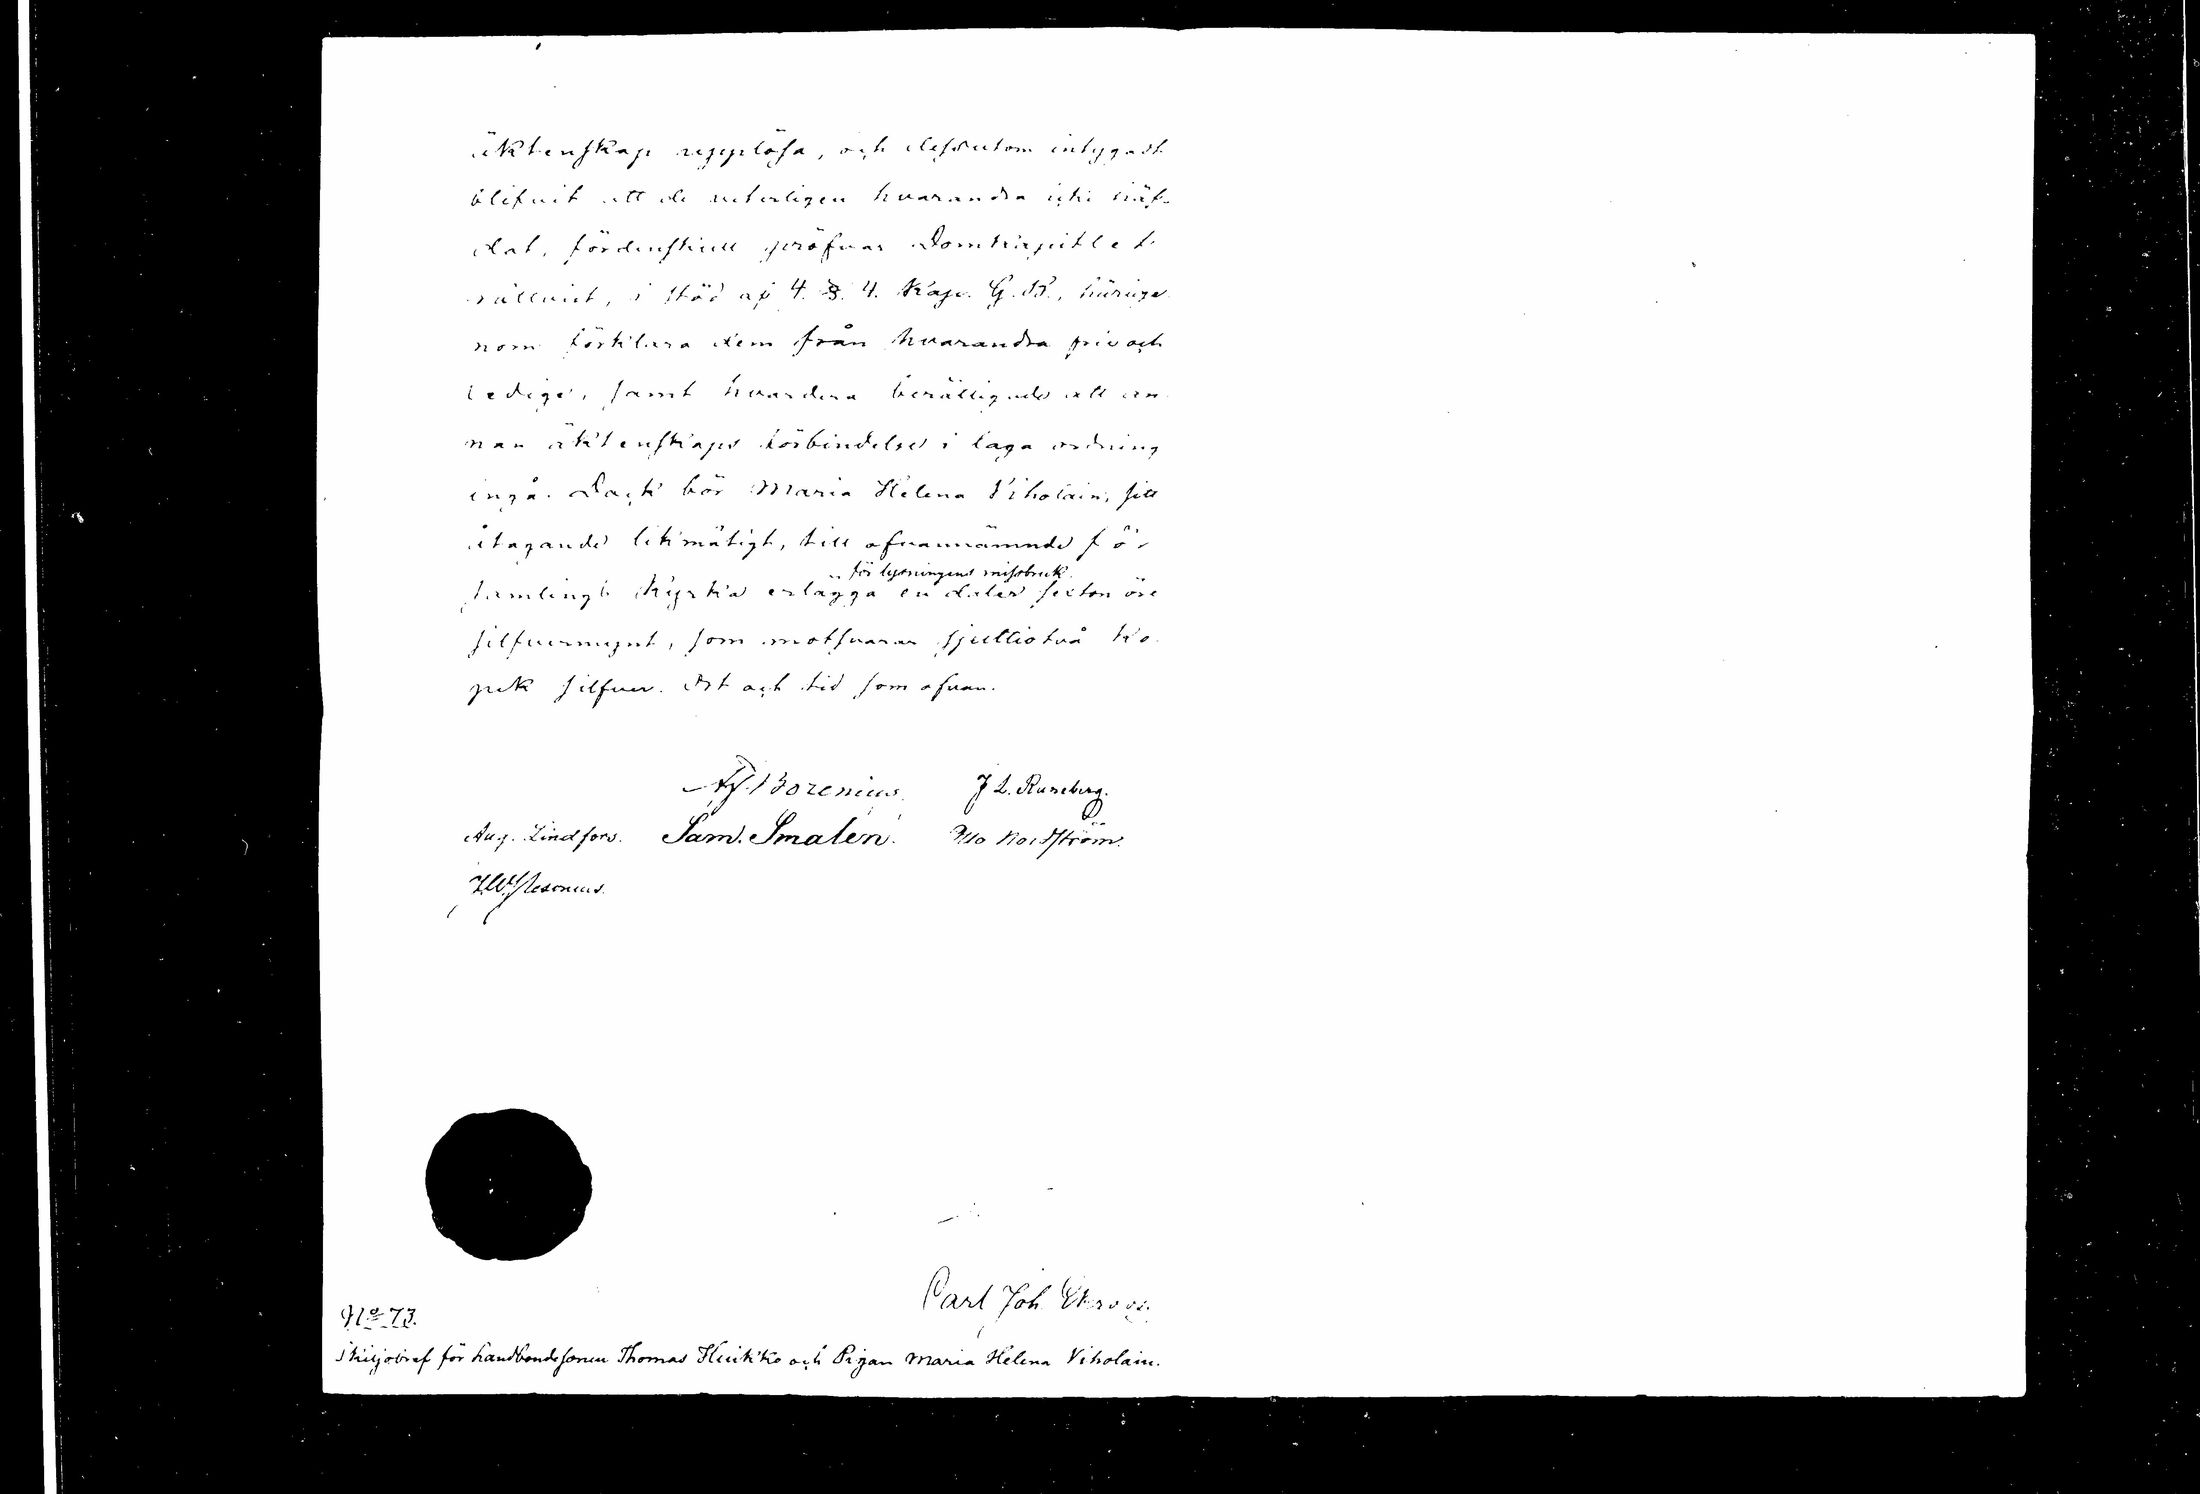 äktenskap upplösa, och dessutom intygadt
blifvit att de veterligen hvarandra icke häf-
dat, fördenskull pröfvar Domkapitlet
rättvist, i stöd af 4. §. 4. Kap. G. B., härige-
nom förklara dem från hvarandra fria och
lediga, samt hvardera berättigade att an-
nan äktenskaps förbindelse i laga ordning
ingå. Dock bör Maria Helena Viholain, sitt
åtagande likmätigt, till ofvannämnde för
för lysningens missbruk
samlings Kyrka erlägga en daler sexton öre
silfvermynt, som motsvarar sjuttiotvå ko-
pek silfver. Ort och tid som ofvan.
Borenius. J L. Runeberg.
Aug. Lindfors. Sam. Smalén. Nordström.
Carl Joh
No 73.
Skiljobref för Landbondesonen Thomas Huikko och Pigan Maria Helena Viholain.